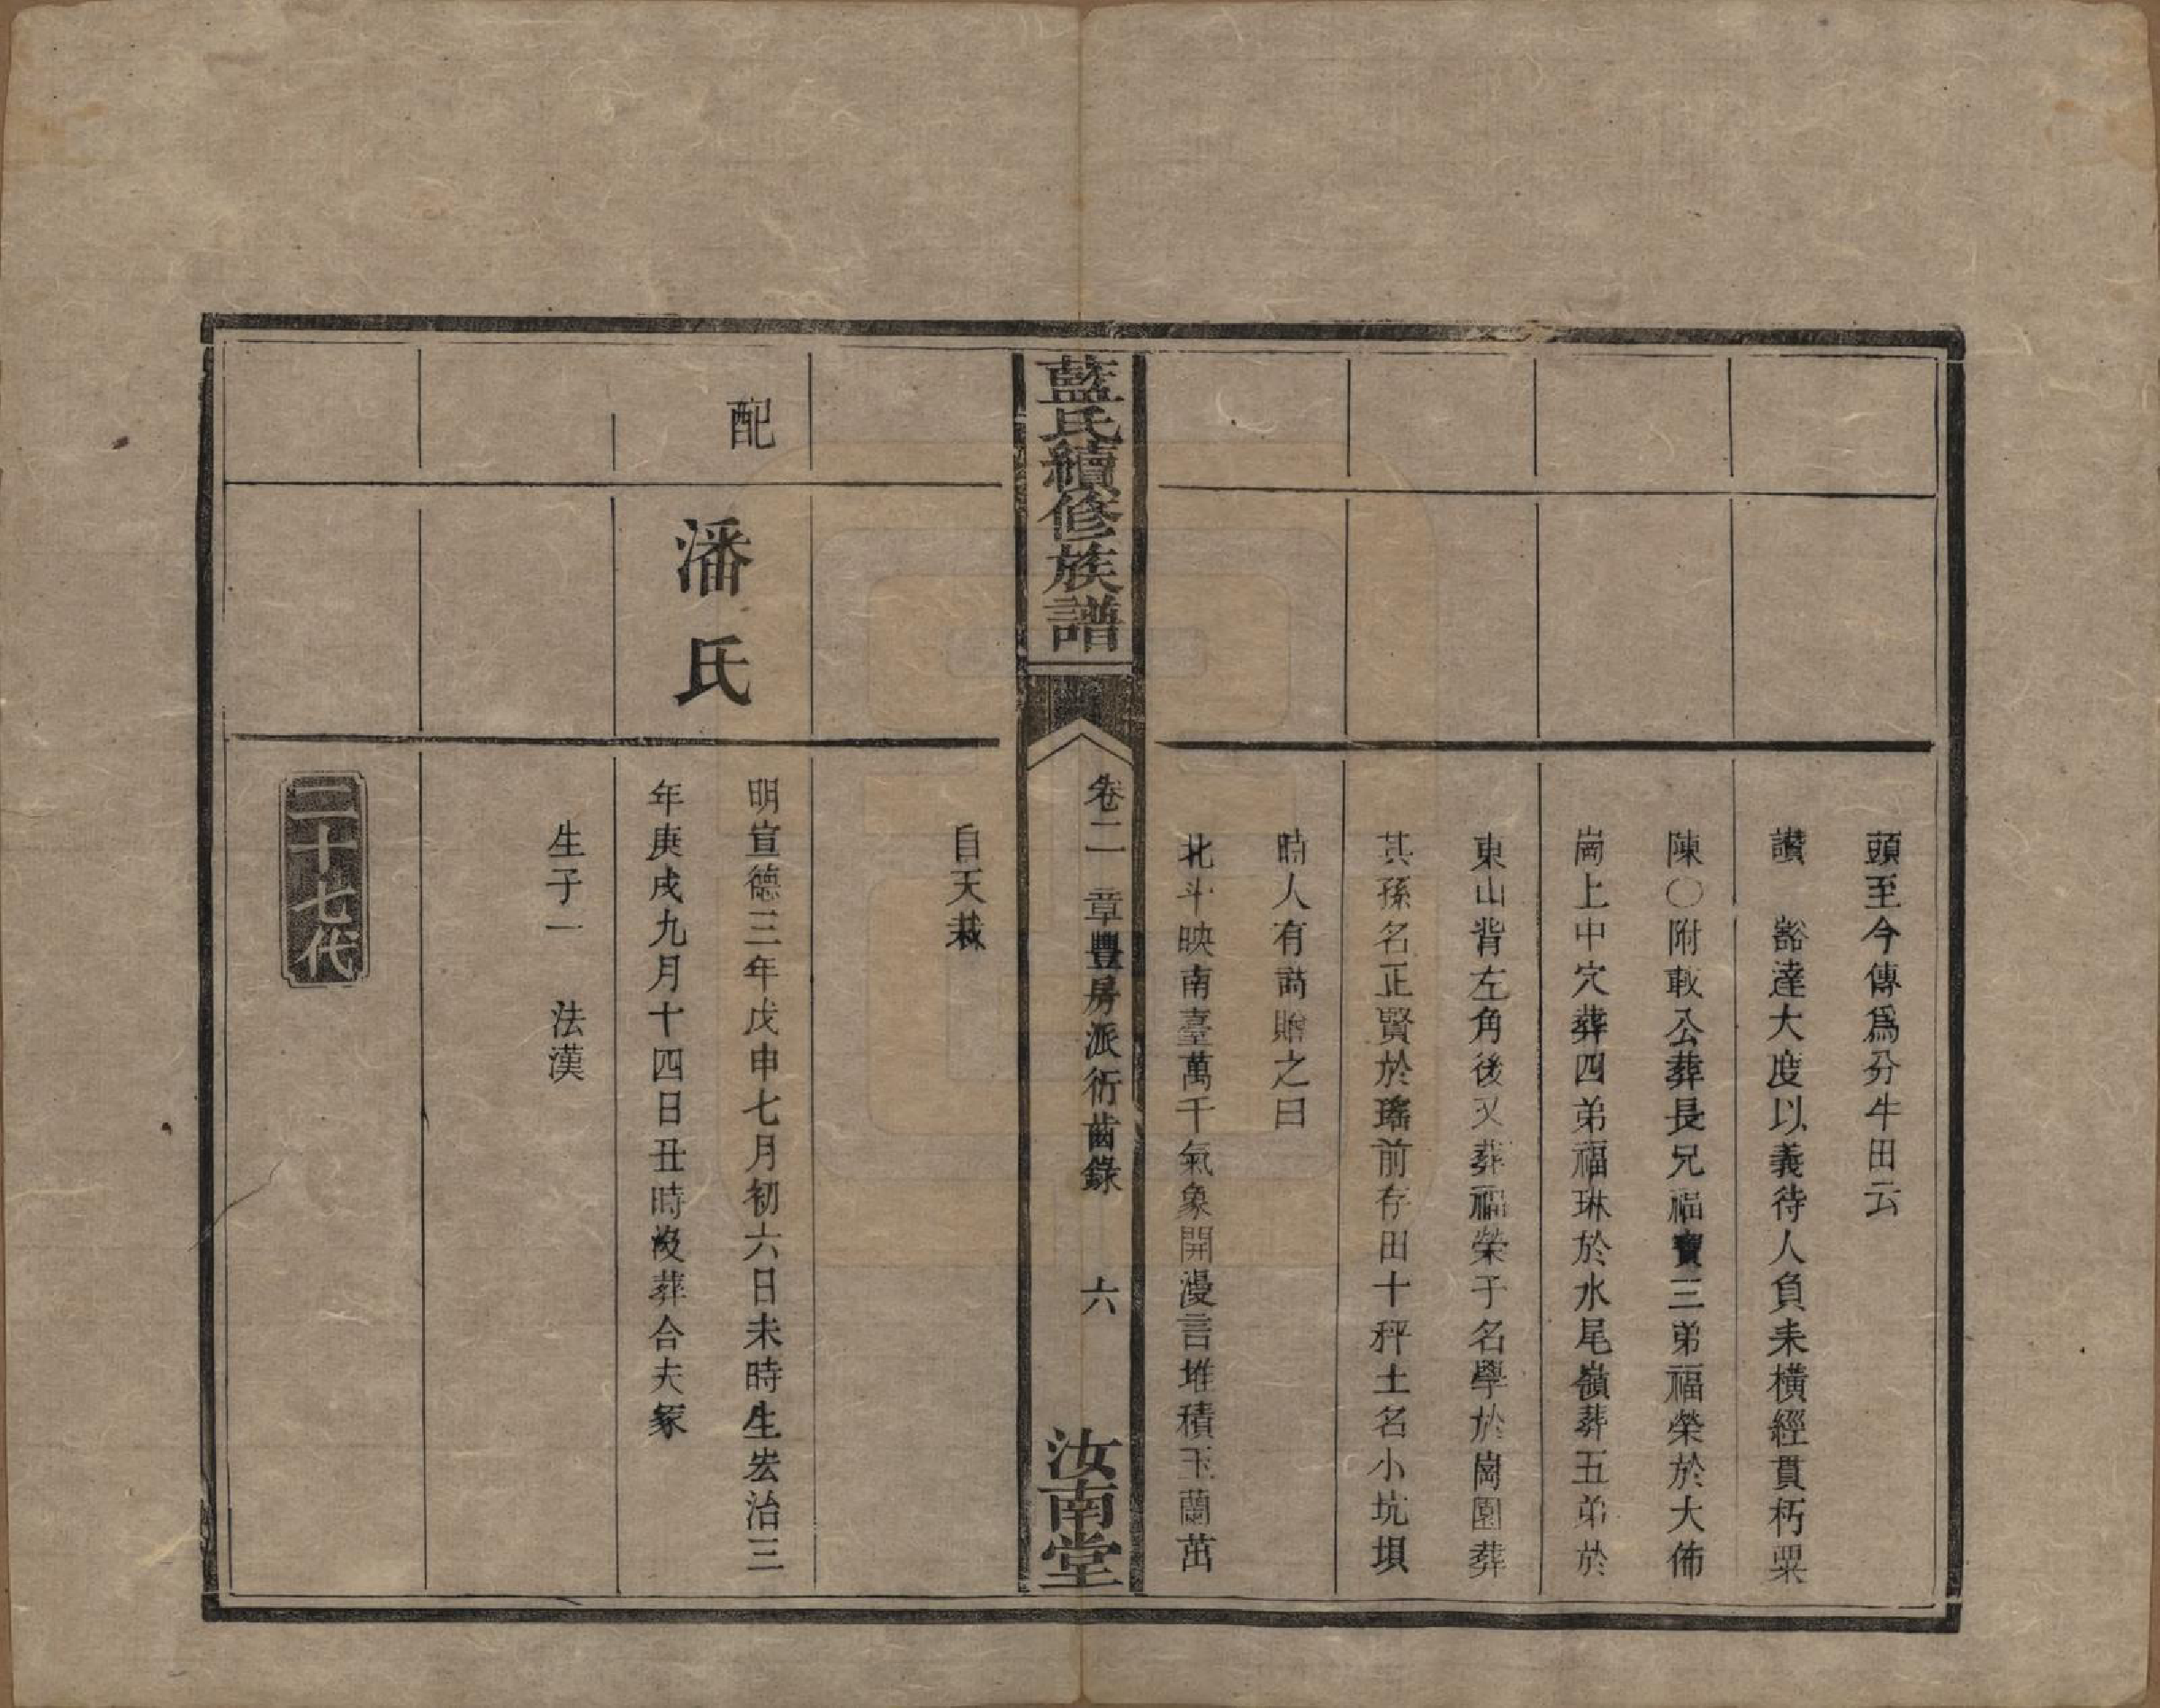 頭至今傳爲分牛田云
讚　豁達大度以義待人負耒橫經貫朽粟
陳〇附載公葬長兄福寶三弟福榮於大佈
崗上中穴葬四弟福琳於水尾嶺葬五弟於
東山背左角後又葬福榮子名學於崗園葬
其孫名正賢於瑤前存田十秤土名小坑垻
時人有詩贈之曰
北斗映南臺萬千氣象開漫言堆積玉蘭茁
藍氏續修族譜
卷二　章豐房派衍齒錄　六
汝南堂
自天栽
配
潘氏
明宣德三年戊申七月初六日未時生宏治三
年庚戌九月十四日丑時歿葬合夫冢
生子一　法漢
二十七代